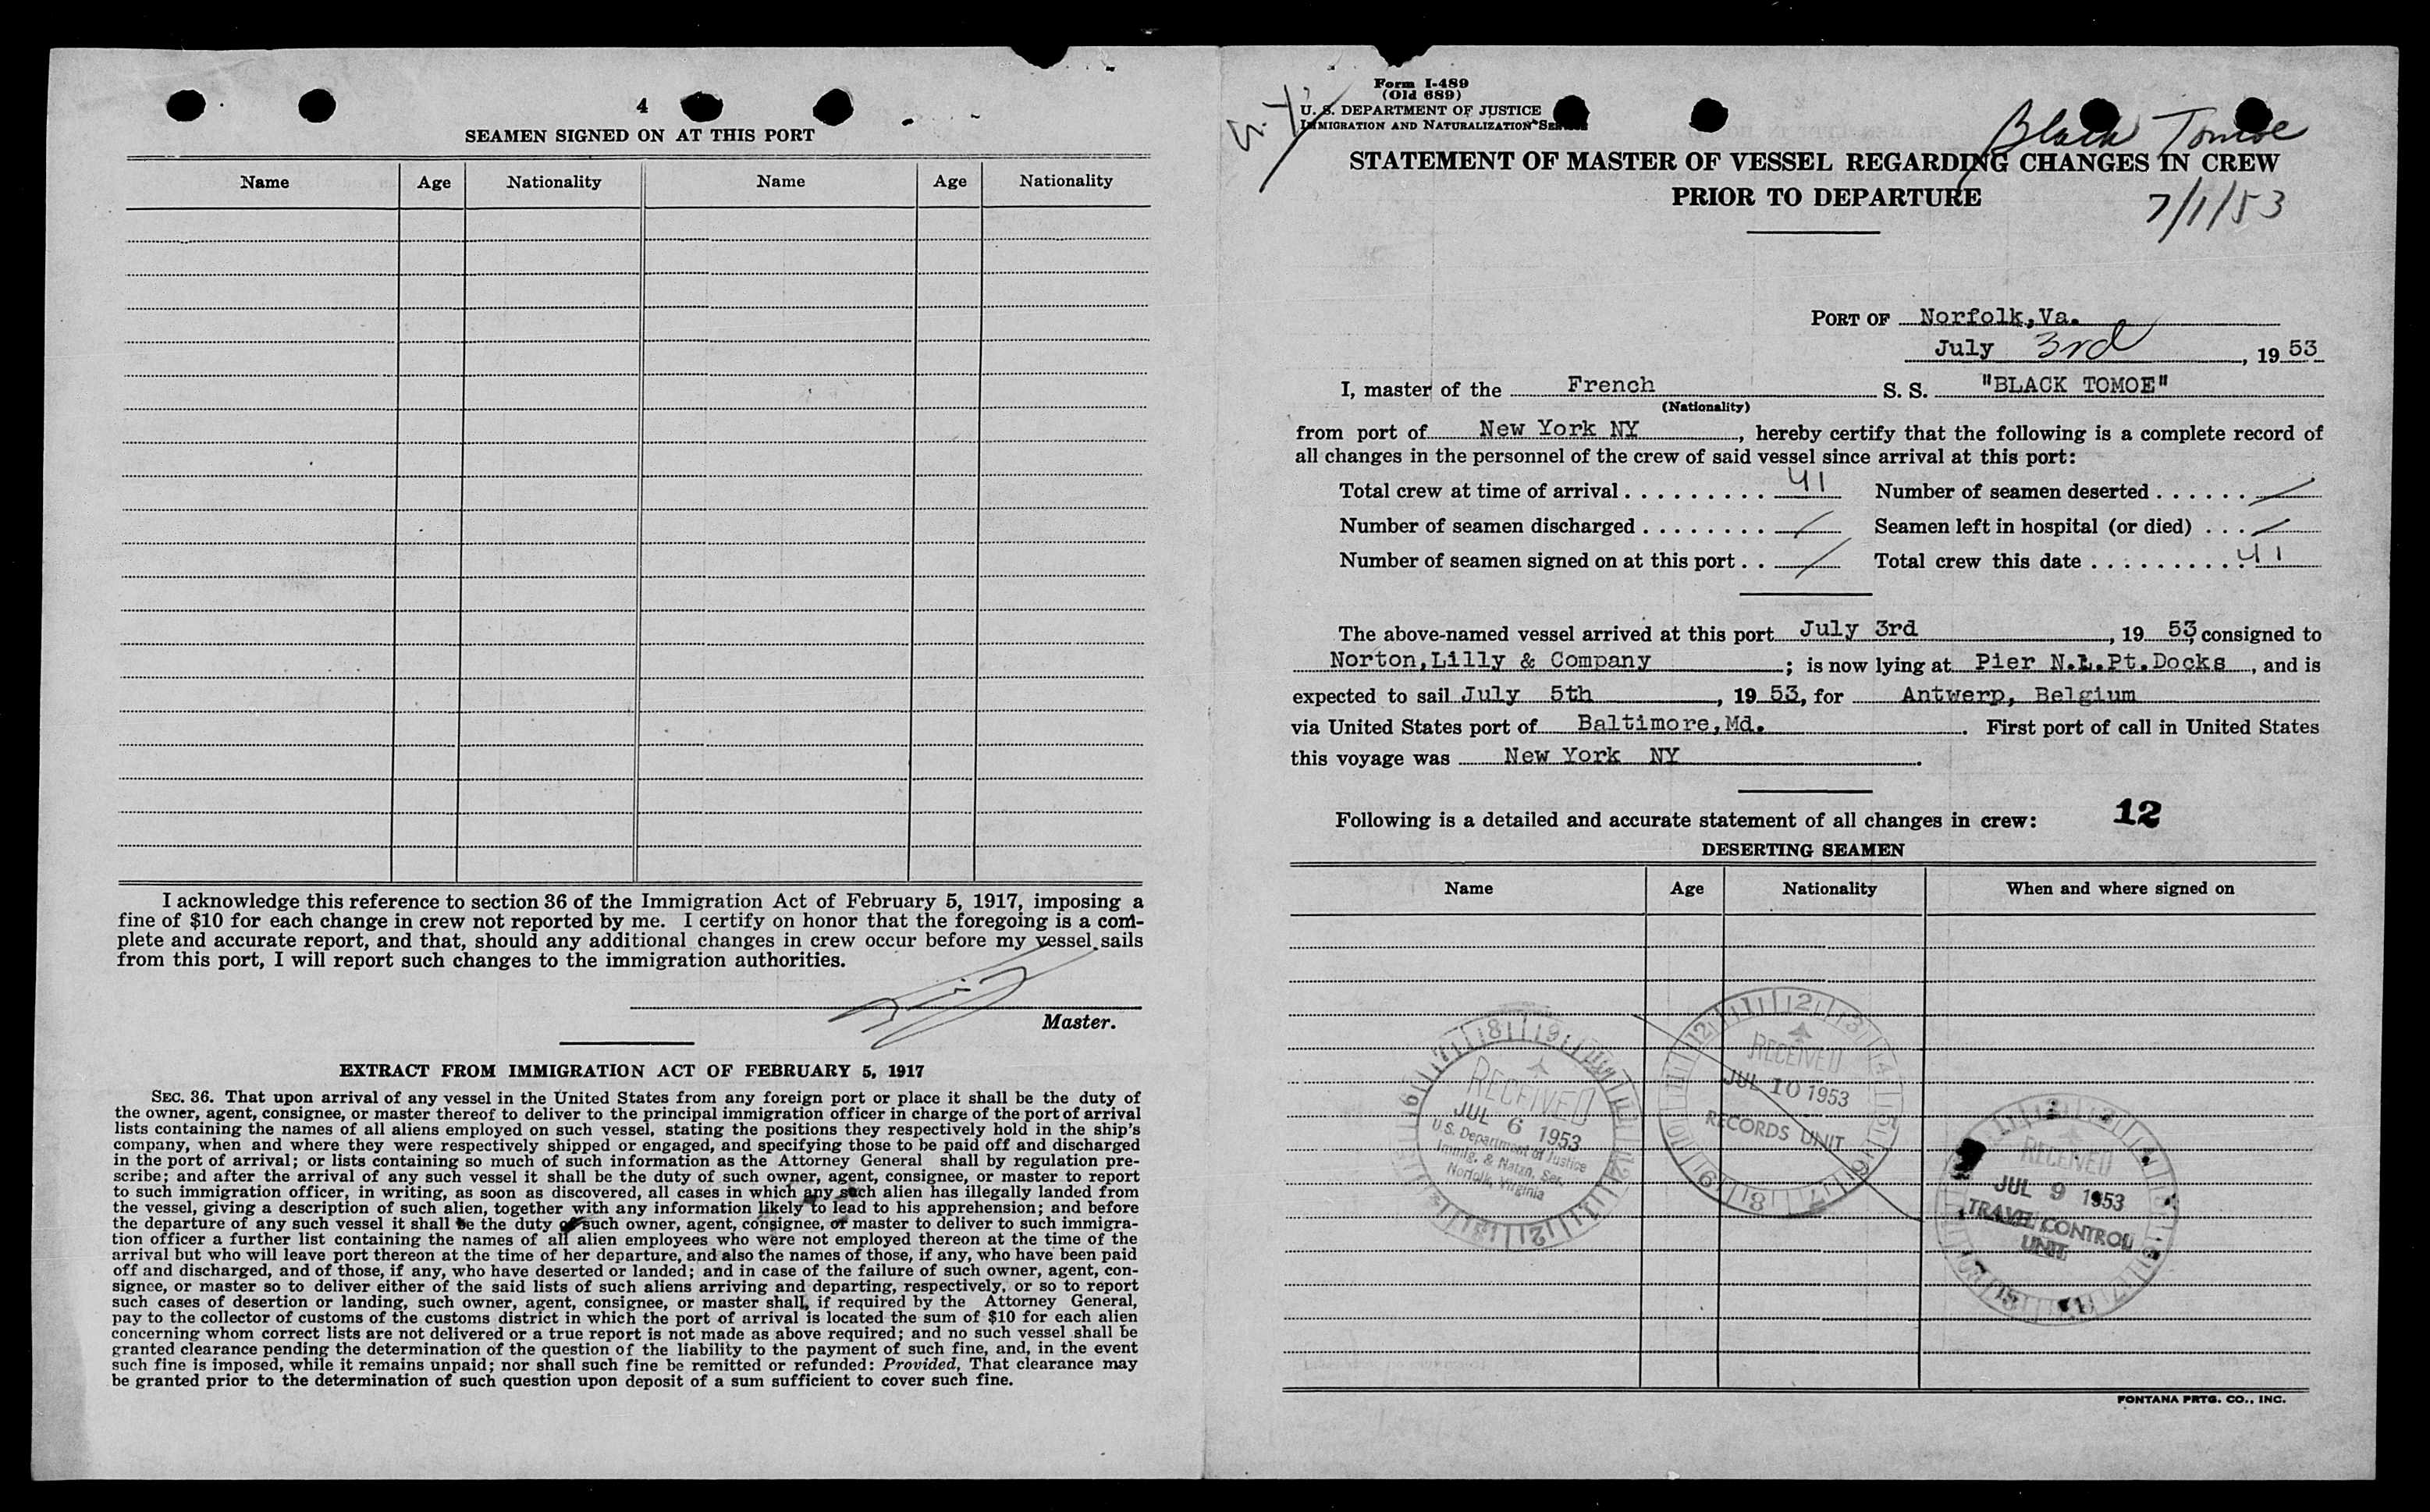 4
SEAMEN SIGNED ON AT THIS PORT
Name Age Nationality Name Age Nationality
I acknowledge this reference to section 36 of the Immigration Act of February 5, 1917, imposing a
fine of $10 for each change in crew not reported by me. I certify on honor that the foregoing is a com-
plete and accurate report, and that, should any additional changes in crew occur before my vessel sails
from this port, I will report such changes to the immigration authorities.
Master.
EXTRACT FROM IMMIGRATION ACT OF FEBRUARY 5, 1917
SEC. 36. That upon arrival of any vessel in the United States from any foreign port or place it shall be the duty of
the owner, agent, consignee, or master thereof to deliver to the principal immigration officer in charge of the port of arrival
lists containing the names of all aliens employed on such vessel, stating the positions they respectively hold in the ship's
company, when and where they were respectively shipped or engaged, and specifying those to be paid off and discharged
in the port of arrival; or lists containing so much of such information as the Attorney General shall by regulation pre-
scribe; and after the arrival of any such vessel it shall be the duty of such owner, agent, consignee, or master to report
to such immigration officer, in writing, as soon as discovered, all cases in which any such alien has illegally landed from
the vessel, giving a description of such alien, together with any information likely to lead to his apprehension; and before
the departure of any such vessel it shall be the duty of such owner, agent, consignee, or master to deliver to such immigra-
tion officer a further list containing the names of all alien employees who were not employed thereon at the time of the
arrival but who will leave port thereon at the time of her departure, and also the names of those, if any, who have been paid
off and discharged, and of those, if any, who have deserted or landed; and in case of the failure of such owner, agent, con-
signee, or master so to deliver either of the said lists of such aliens arriving and departing, respectively, or so to report
such cases of desertion or landing, such owner, agent, consignee, or master shall, if required by the Attorney General,
pay to the collector of customs of the customs district in which the port of arrival is located the sum of $10 for each alien
concerning whom correct lists are not delivered or a true report is not made as above required; and no such vessel shall be
granted clearance pending the determination of the question of the liability to the payment of such fine, and, in the event
such fine is imposed, while it remains unpaid; nor shall such fine be remitted or refunded: Provided, That clearance may
be granted prior to the determination of such question upon deposit of a sum sufficient to cover such fine.
Form I-489
(Old 689)
U. S. DEPARTMENT OF JUSTICE
IMMIGRATION AND NATURALIZATION SERVICE
Black Tomoe
STATEMENT OF MASTER OF VESSEL REGARDING CHANGES IN CREW
PRIOR TO DEPARTURE
7/1/53
PORT OF Norfolk,Va.
July 3rd, 19 53
I, master of the French S. S. "BLACK TOMOE"
(Nationality)
from port of New York NY, hereby certify that the following is a complete record of
all changes in the personnel of the crew of said vessel since arrival at this port:
Total crew at time of arrival 41 Number of seamen deserted /
Number of seamen discharged / Seamen left in hospital (or died) /
Number of seamen signed on at this port / Total crew this date 41
The above-named vessel arrived at this port July 3rd, 19 53, consigned to
Norton,Lilly & Company; is now lying at Pier N.L.Pt.Docks, and is
expected to sail July 5th, 19 53, for Antwerp, Belgium
via United States port of Baltimore,Md. First port of call in United States
this voyage was New York NY.
Following is a detailed and accurate statement of all changes in crew: 12
DESERTING SEAMEN
Name Age Nationality When and where signed on
RECEIVED
JUL 6 1953
U.S. Department of Justice
Immig. & Natzn. Ser.
Norfolk, Virginia
RECEIVED
JUL 10 1953
RECORDS UNIT
RECEIVED
JUL 9 1953
TRAVEL CONTROL
UNIT
FONTANA PRTG. CO., INC.